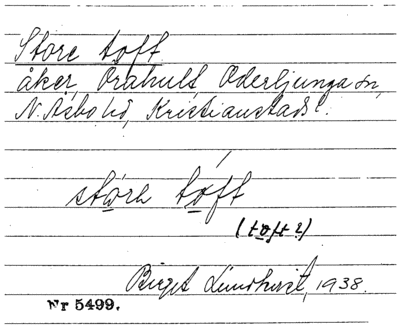 Store toft
åker, Orahult, Oderljunga sn,
N. Åsbo hd, Kristianstads l.
störe toft
(toft 2)
Birgit Lundkvist, 1938.
Nr 5499.